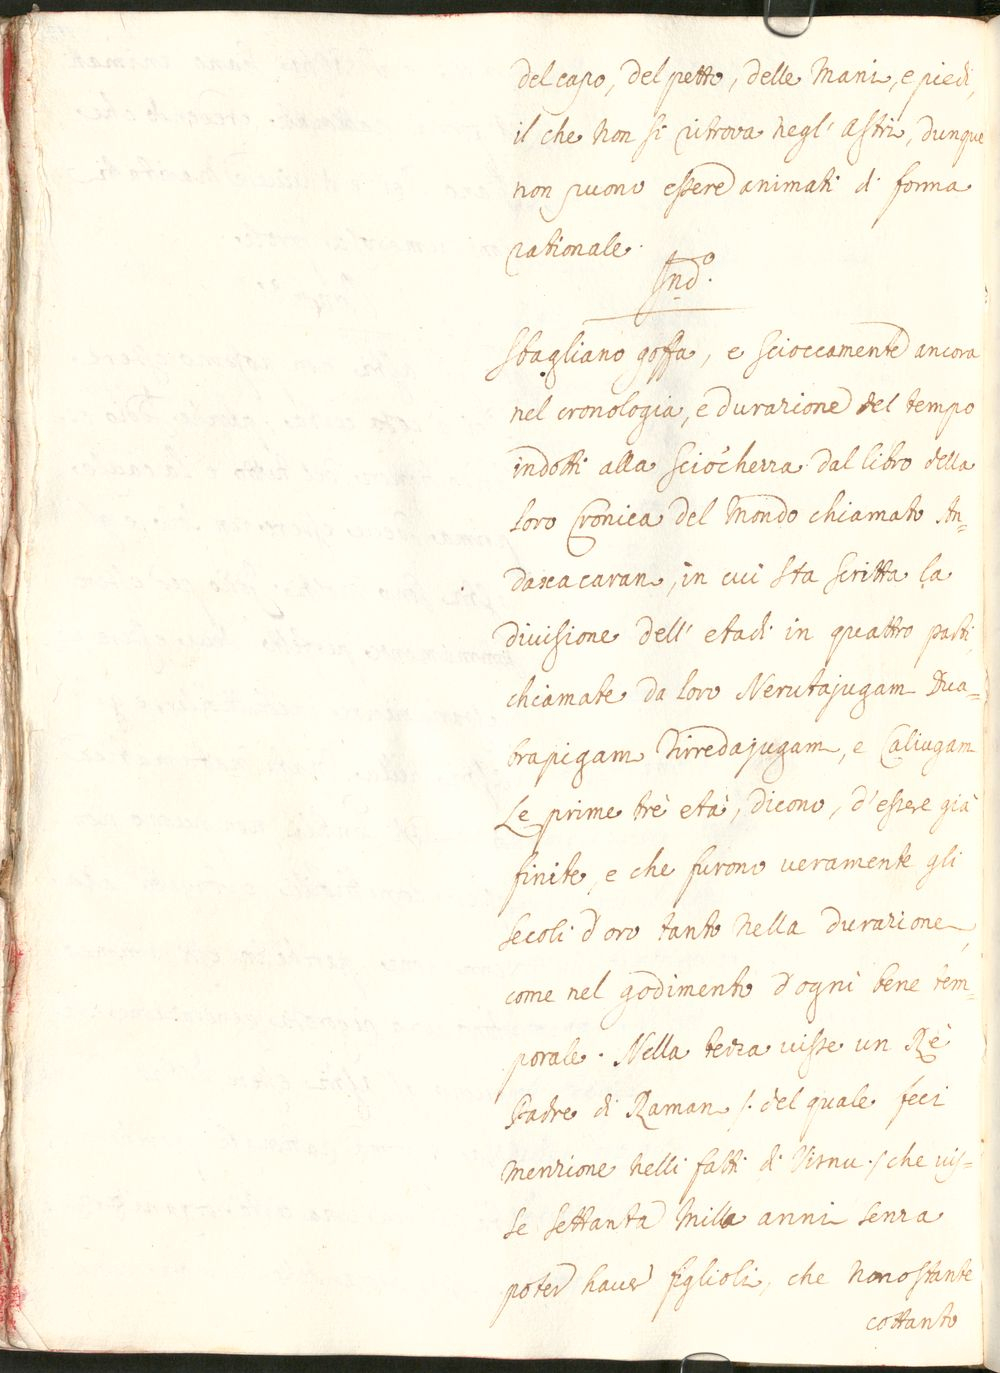 del capo, del petto, delle Mani, e piedi,
il che non si ritrova negl' Astri, dunque
non puono essere animati di forma
rationale.
Ind.º
Sbagliano goffa, e scioccamente ancora
nel cronologia, e durazione del tempo
indotti alla sciocherza dal libro della
loro Cronica del Mondo chiamato An=
daxacaran, in cui sta scritta la
divisione dell' etadi in quattro parti,
chiamate da loro Nerutajugam Dua=
brapigam Tirredajugam, e Caliugam
Le prime trè età, dicono, d'essere già
finite, e che furono veramente gli
secoli d'oro tanto nella durazione,
come nel godimento d'ogni bene tem=
porale. Nella terza visse un Rè
Padre di Raman /: del quale feci
menzione nelli fatti di Visnu :/ che vis=
se settanta milla anni senza
poter haver figlioli, che nonostante
cottanto